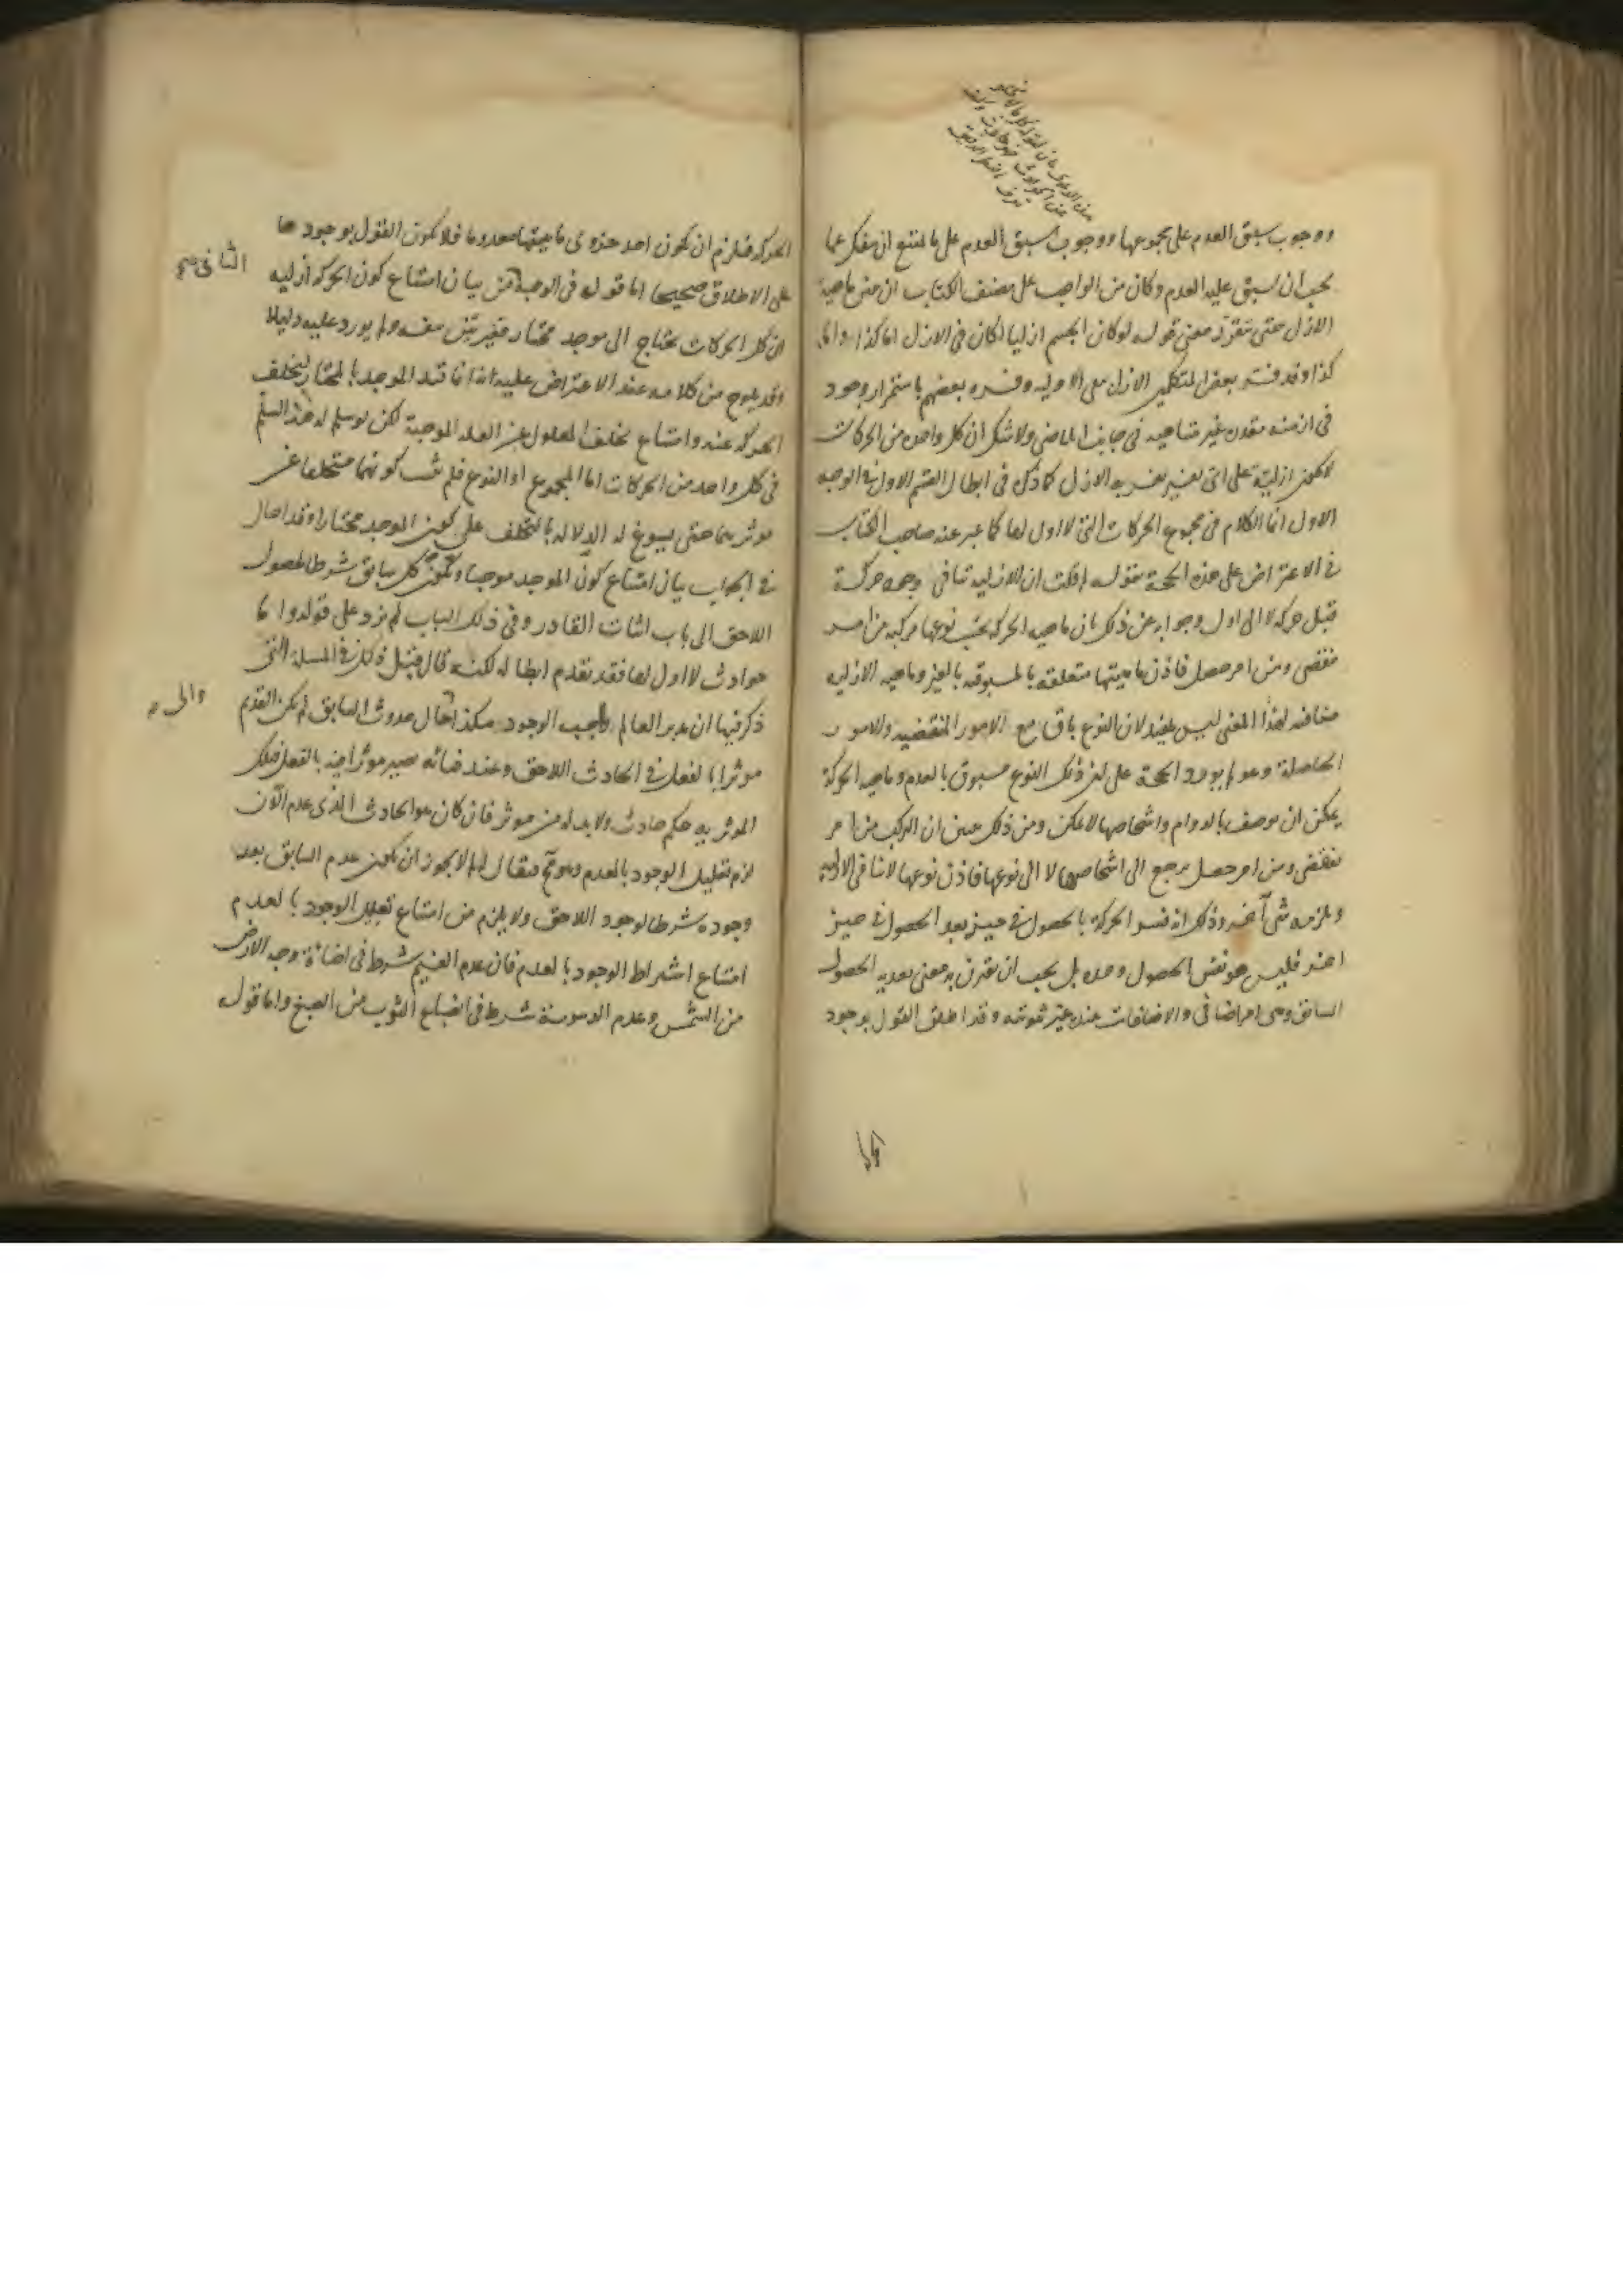 ووجوب سبق العدم على مجموعها ووجوب سبق العدم على ما يمتنع ان ينفك عما
يجب ان يسبق عليه العدم وكان من الواجب على مصنف الكتاب ان يفسر ماهية
الازل حتى يتقرر معنى قوله لو كان الجسم ازليا لكان فى الازل اما كذا واما
كذا وقد فسر بعض المتكلمين الازل بنفى الاولية وفسره بعضهم باستمرار وجود
فى ازمنة مقدرة غير متناهية فى جانب الماضى ولا شك ان كل واحد من الحركات
لا يكون ازلية على اى تفسير يفسر به الازل كما ذكر فى ابطال القسم الاول فى الوجه
الاول انما الكلام فى مجموع الحركات التى لا اول لها كما عبر عنه صاحب الكتاب
فى الاعتراض على هذه الحجة بقوله لم قلت ان الازلية تنافى وجود حركة
قبل حركة لا الى اول وجوابه عن ذلك بان ماهية الحركة بحسب نوعها مركبة من امر
تقضى ومن امر حصل فاذن ماهيتها متعلقة بالمسبوقية بالغير وماهية الازلية
منافية لهذا المعنى ليس بمفيد لان النوع باق مع الامور المنقضية والامور
الحاصلة وهو لم يورد الحجة على ان ذلك النوع مسبوق بالعدم وماهية الحركة
يمكن ان يوصف بالدوام واشخاصها لا يمكن ومن ذلك يتبين ان التركب من امر
تقضى ومن امر حصل يرجع الى اشخاصها لا الى نوعها فاذن نوعها لا ينافى الازلية
ويلزمه شىء آخر وذلك انه فسر الحركة بالحصول فى حيز بعد الحصول فى حيز
اخر فليس هو نفس الحصول وحده بل يجب ان يقترن به معنى بعدية الحصول
السابق وهى امر اضافى والاضافات عنده غير ثبوتية وقد اطلق القول بوجود
الحركة فيلزم ان يكون احد جزءى ماهيتها معدوما فلا يكون القول بوجودها
على الاطلاق صحيحا اما قوله فى الوجه من بيان امتناع كون الحركة ازلية
ان كل الحركات يحتاج الى موجد مختار فغير بين بنفسه ولم يورد عليه دليلا
وقد يلوح من كلامه عند الاعتراض عليه انه انما قيد الموجد بالمختار ليتخلف
الحركة عنه وامتناع تخلف المعلول عن العلة الموجبة لكن لو سلم له هذا السلم
فى كل واحد من الحركات اما المجموع او النوع فلم يثبت كونهما متخلفا عن
موثرهما حتى يسوغ له الدلالة بالتخلف على كون الموجد مختارا وقد احال
فى الجواب بيان امتناع كون الموجد موجبا ويكون كل سابق شرطا لحصول
اللاحق الى باب اثبات القادر وفى ذلك الباب لم يزد على قوله واما
حوادث لا اول لها فقد تقدم ابطاله لكنه قال قبل ذلك فى المسلة التى
ذكر فيها ان مدبر العالم واجب الوجود هكذا حال حدوث السابق لم يكن القديم
موثرا بالفعل فى الحادث اللاحق وعند فنائه يصير موثرا فيه بالفعل فتلك
الموثرية حكم حادث ولا بد له من موثر فان كان هو الحادث الذى عدم الآن
لزم تعليل الوجود بالعدم وهو مح فيقال له لم لا يجوز ان يكون عدم السابق بعد
وجوده شرطا لوجود اللاحق ولا يلزم من امتناع تعليل الوجود بالعدم
امتناع اشتراط الوجود بالعدم فان عدم الغيم شرط فى اضاءة وجه الارض
من الشمس وعدم الدسومة شرط فى انصباغ الثوب من الصبغ واما قوله